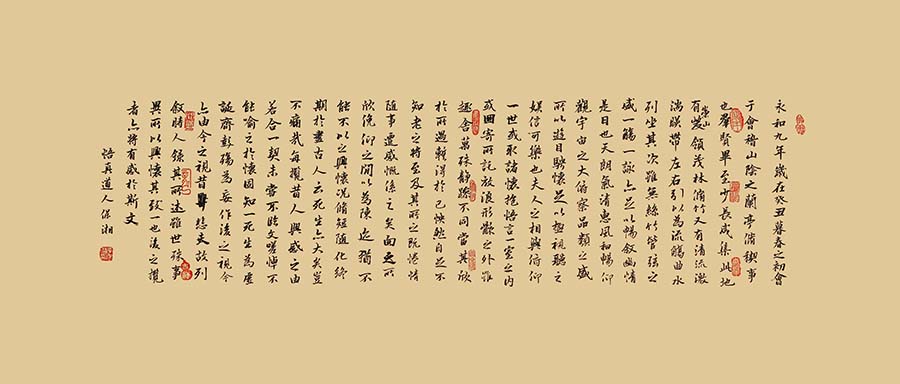 永和九年歲在癸丑暮春之初會
于會稽山陰之蘭亭脩禊事
也羣賢畢至少長咸集此地
有崇山峻領茂林脩竹又有清流激
湍暎帶左右引以為流觴曲水
列坐其次雖無絲竹管弦之
盛一觴一詠亦足以暢敘幽情
是日也天朗氣清惠風和暢仰
觀宇宙之大俯察品類之盛
所以遊目騁懷足以極視聽之
娛信可樂也夫人之相與俯仰
一世或取諸懷抱悟言一室之內
或因寄所託放浪形骸之外雖
趣舍萬殊靜躁不同當其欣
於所遇蹔得於己怏然自足不
知老之將至及其所之既惓情
隨事遷感慨係之矣向之所
欣俛仰之閒以為陳迹猶不
能不以之興懷況脩短隨化終
期於盡古人云死生亦大矣豈
不痛哉每攬昔人興感之由
若合一契未嘗不臨文嗟悼不
能喻之於懷固知一死生為虛
誕齊彭殤為妄作後之視今
亦由今之視昔悲夫故列
敘時人錄其所述雖世殊事
異所以興懷其致一也後之攬
者亦將有感於斯文
悟真道人保湘